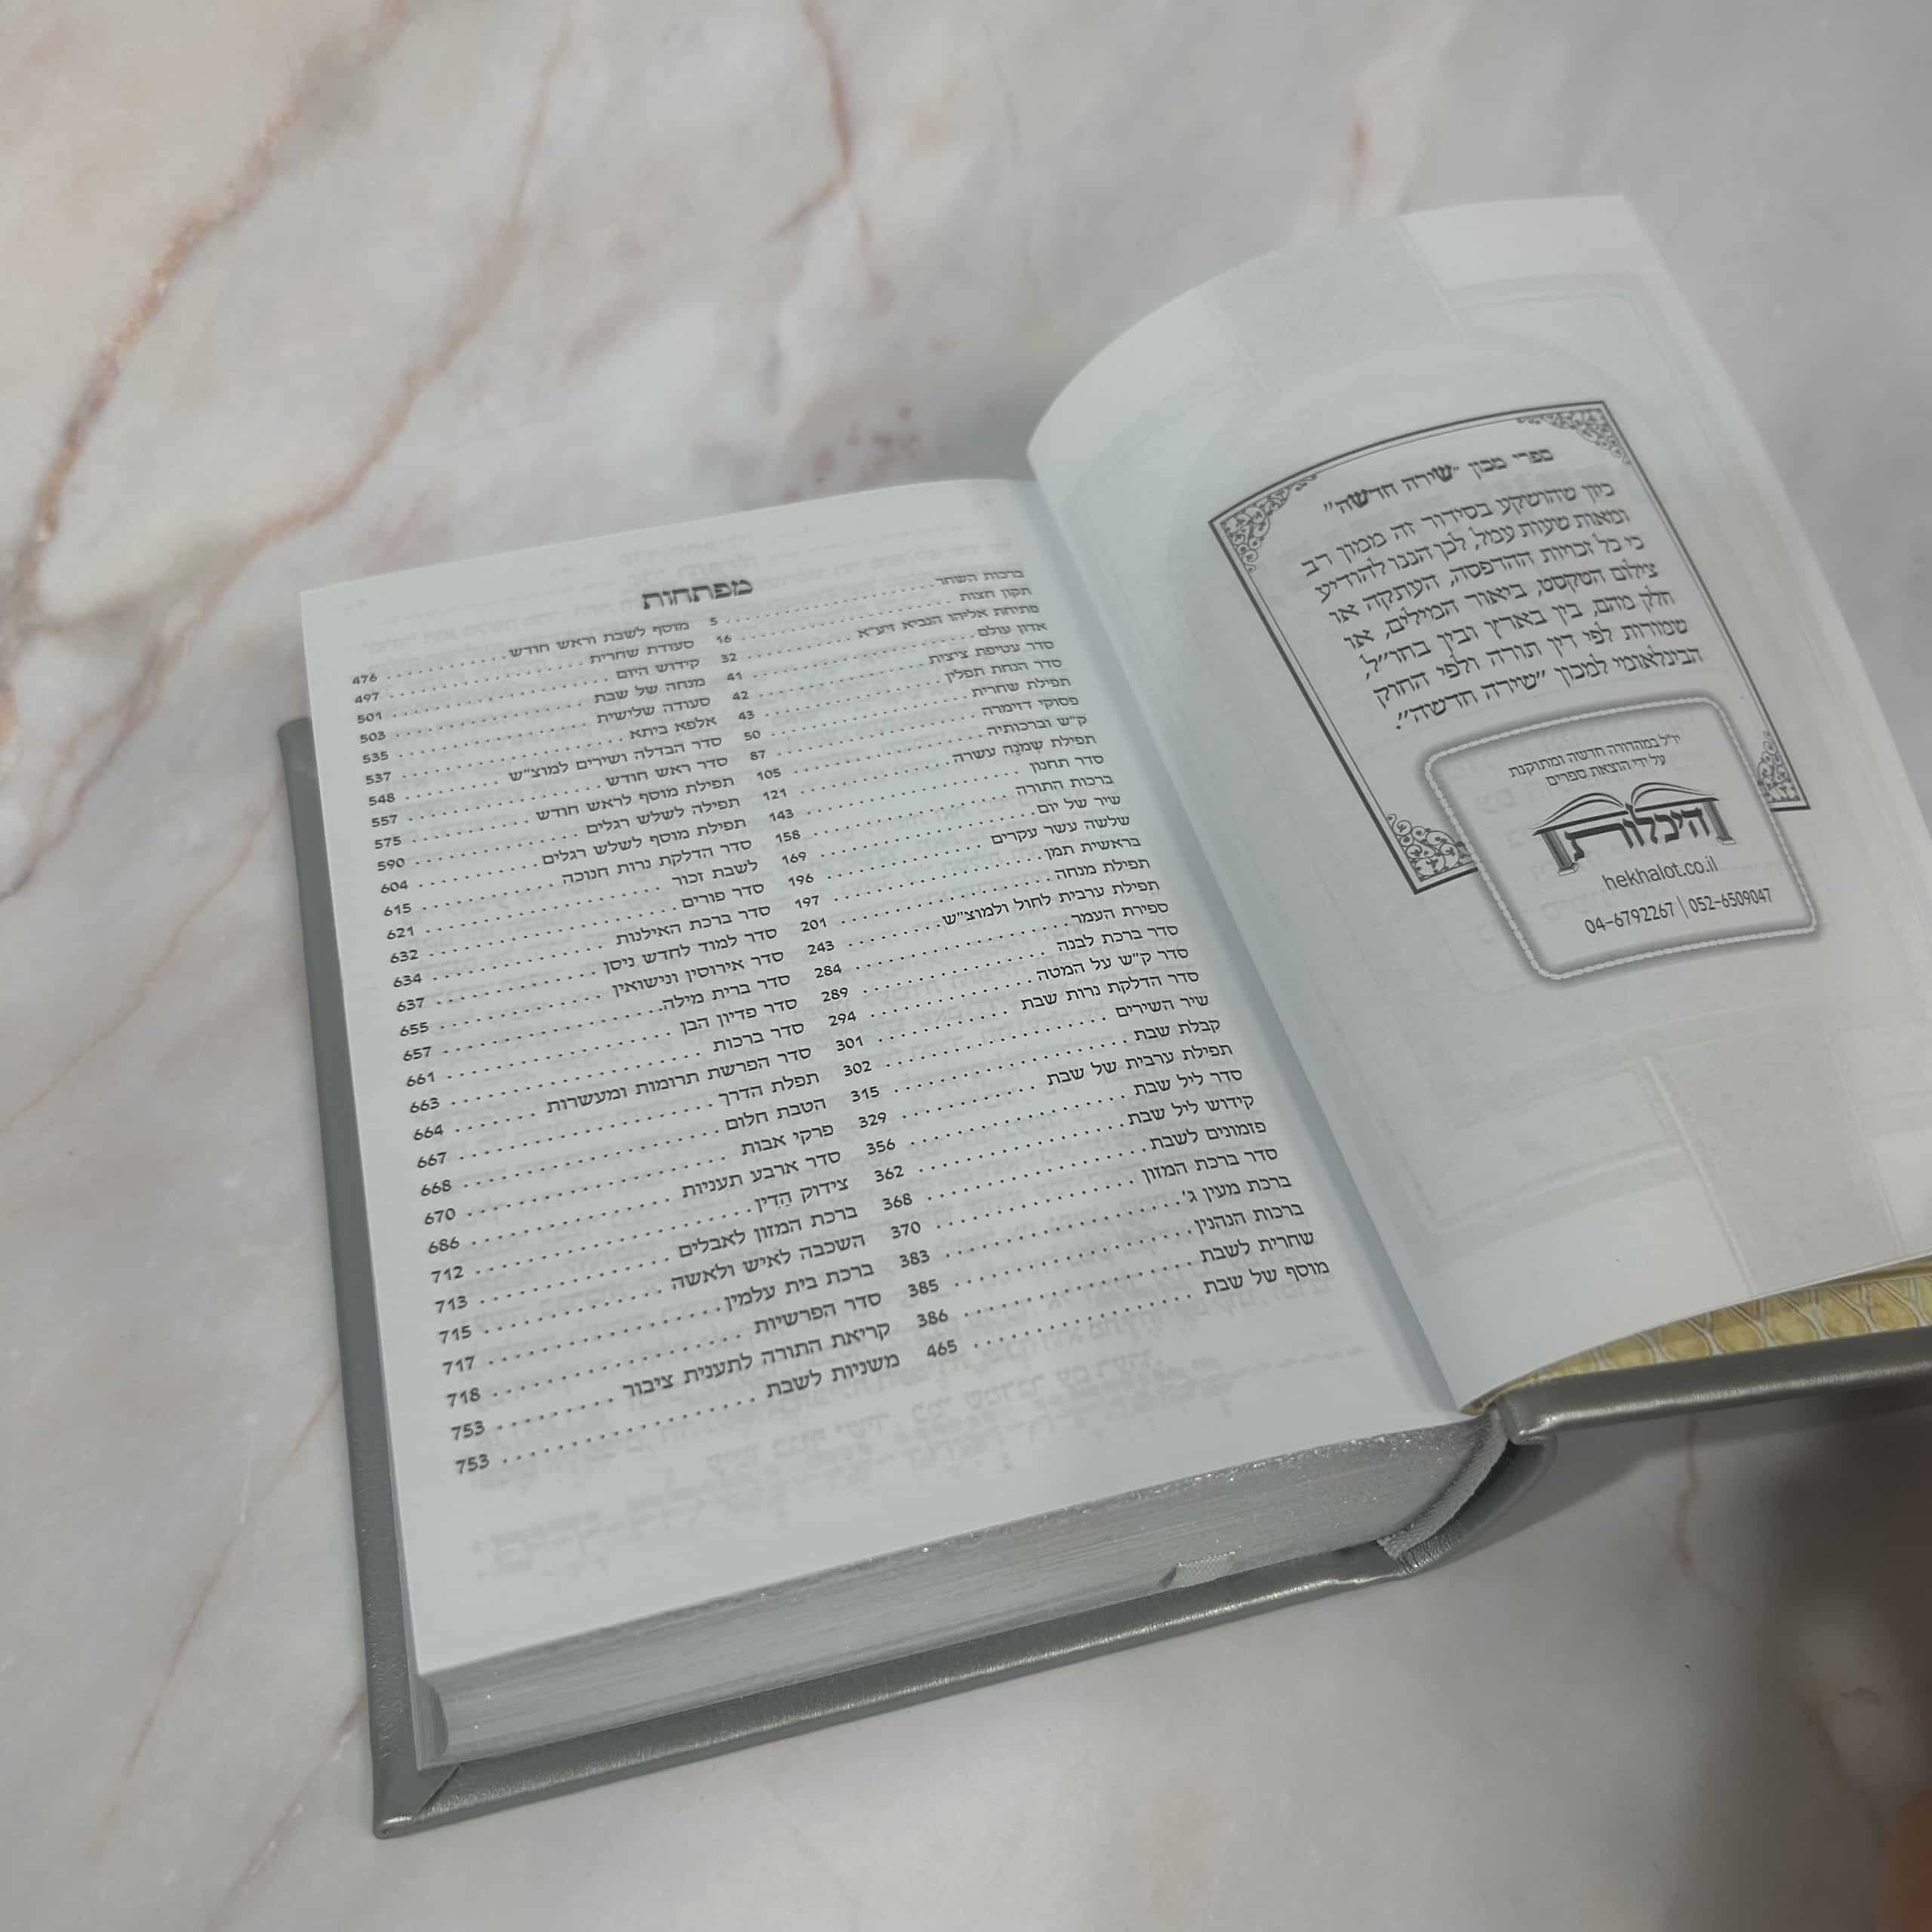 ספרי מכון "שירה חדשה"
כיון שהושקע בסידור זה ממון רב
ומאות שעות עמל, לכן הננו להודיע
כי כל זכויות ההדפסה, העתקה או
צילום הטקסט, ביאור המילים, או
חלק מהם, בין בארץ ובין בחו"ל,
שמורות לפי דין תורה ולפי החוק
הבינלאומי למכון "שירה חדשה".
יו"ל במהדורה חדשה ומתוקנת
על ידי הוצאת ספרים
היכלות
hekhalot.co.il
04-6792267 | 052-6509047
מפתחות
ברכות השחר 5
תקון חצות 16
פתיחת אליהו הנביא זיע"א 32
אדון עולם 41
סדר עטיפת ציצית 42
סדר הנחת תפלין 43
תפילת שחרית 50
פסוקי דזימרה 87
ק"ש וברכותיה 105
תפילת שמנה עשרה 121
סדר תחנון 143
ברכות התורה 158
שיר של יום 169
שלשה עשר עקרים 196
בראשית תמן 197
תפילת מנחה 201
תפילת ערבית לחול ולמוצ"ש 243
ספירת העמר 284
סדר ברכת לבנה 289
סדר ק"ש על המטה 294
סדר הדלקת נרות שבת 301
שיר השירים 302
קבלת שבת 315
תפילת ערבית של שבת 329
סדר ליל שבת 356
קידוש ליל שבת 362
פזמונים לשבת 368
סדר ברכת המזון 370
ברכת מעין ג' 383
ברכות הנהנין 385
שחרית לשבת 386
מוסף של שבת 465
מוסף לשבת וראש חודש 476
סעודת שחרית 497
קידוש היום 501
מנחה של שבת 503
סעודה שלישית 535
אלפא ביתא 537
סדר הבדלה ושירים למוצ"ש 548
סדר ראש חודש 557
תפילת מוסף לראש חודש 575
תפילה לשלש רגלים 590
תפילת מוסף לשלש רגלים 604
סדר הדלקת נרות חנוכה 615
לשבת זכור 621
סדר פורים 632
סדר ברכת האילנות 634
סדר למוד לחדש ניסן 637
סדר אירוסין ונישואין 655
סדר ברית מילה 657
סדר פדיון הבן 661
סדר ברכות 663
סדר הפרשת תרומות ומעשרות 664
תפלת הדרך 667
הטבת חלום 668
פרקי אבות 670
סדר ארבע תעניות 686
צידוק הַדִין 712
ברכת המזון לאבלים 713
השכבה לאיש ולאשה 715
ברכת בית עלמין 717
סדר הפרשיות 718
קריאת התורה לתענית ציבור 753
משניות לשבת 753